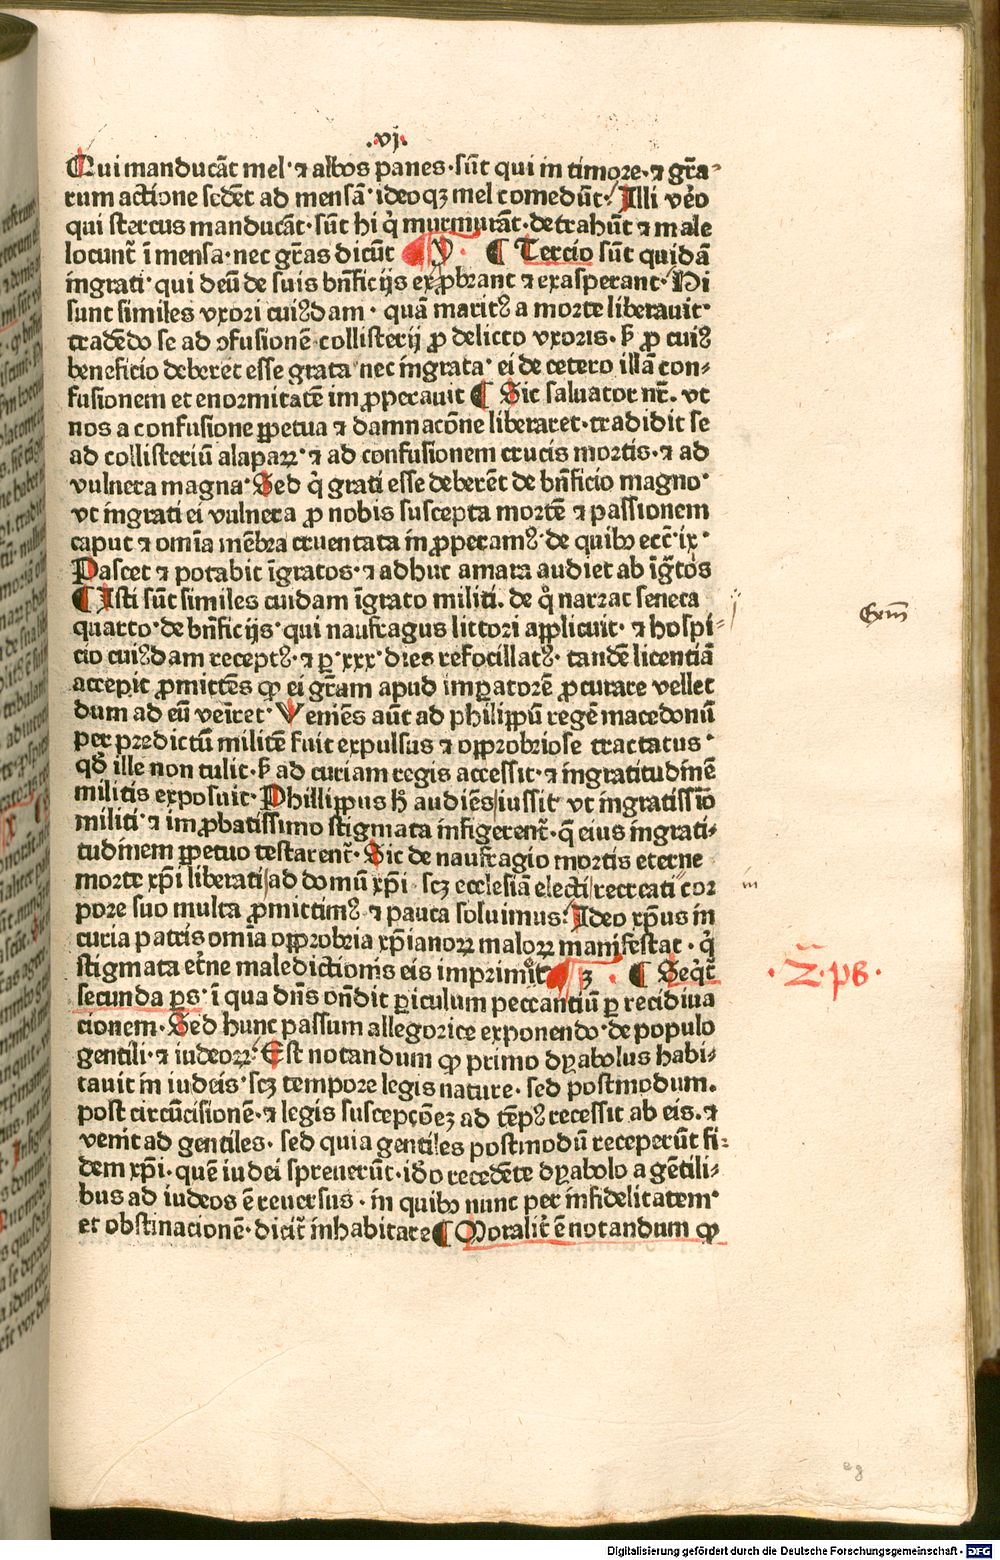 .vj.
Qui manducāt mel· ⁊ albos panes· sūt qui in timore· ⁊ gr̄a⸗
rum actione sedēt ad mensā· ideoqꝫ mel comedūt. Illi v̄o
qui stercus manducāt· sūt hi q̇ murmurāt· detrahūt ⁊ male
locunt̄ ī mensa· nec gr̄as dicūt Y. ¶ Tercio sūt quidā
ingrati· qui deū de suis bn̄ficijs exꝓbrant ⁊ exasperant· Hi
sunt similes vxori cuiꝰdam· quā maritꝰ a morte liberauit·
tradēdo se ad ↄfusionē collisterij ꝓ delicto vxoris· ꝑ ꝓ cuiꝰ
beneficio deberet esse grata nec ingrata· ei de cetero illā con⸗
fusionem et enormitatē imꝓperauit ¶ Sic saluator nr̄. vt
nos a confusione ꝑpetua ⁊ damnacōne liberaret· tradidit se
ad collisteriū alapaꝝ· ⁊ ad confusionem crucis mortis· ⁊ ad
vulnera magna· Sed q̇ grati esse deberēt de bn̄ficio magno·
vt ingrati ei vulnera ꝓ nobis suscepta mortē ⁊ passionem
caput ⁊ om̄ia mēbra cruentata inꝓperamꝰ· de quibꝫ ecc̄ ix·
Pascet ⁊ potabit īgratos· ⁊ adhuc amara audiet ab īgr̄tos
¶ Isti sūt similes cuidam īgrato militi. de q̇ narrat seneca
quarto· de bn̄ficijs· qui naufragus littori applicuit· ⁊ hospi⸗
cio cuiꝰdam receptꝰ· ⁊ ꝑ ·xxx· dies refocillatꝰ· tandē licentiā
accepit ꝓmittēs ꝙ ei gr̄am apud imꝑatorē ꝓcurare vellet
dum ad eū veīret· Veniēs aūt ad philippū regē macedonū
per predictū militē fuit expulsus ⁊ opprobriose tractatus·
qḋ ille non tulit· ꝑ ad curiam regis accessit· ⁊ ingratitudinē
militis exposuit· Phillippus h̄ audiēs iussit vt ingratissīo
militi· ⁊ imꝓbatissimo stigmata infigerent̄· q̄ eius ingrati⸗
tudinem ꝑpetuo testarent̄· Sic de naufragio mortis eterne
morte xp̄i liberati ad domū xp̄i scꝫ ecclesiā electi recreati cor
pore suo multa ꝓmittimꝰ ⁊ pauca soluimus. Ideo xp̄us in
curia patris om̄ia opprobria xp̄ianoꝝ maloꝝ manifestat· q̇
stigmata et̄ne maledictionis eis imprimūt ꝫ. ¶ Seq̄t̄
secunda ꝑs· ī qua dn̄s on̄dit ꝑiculum peccantiū ꝑ recidiua
cionem· Sed hunc passum allegorice exponendo· de populo
gentili· ⁊ iudeoꝝ. Est notandum ꝙ primo dyabolus habi⸗
tauit in iudeis· scꝫ tempore legis nature· sed postmodum.
post circūcisionē· ⁊ legis suscepçōeꝫ ad tēpꝰ recessit ab eis. ⁊
venit ad gentiles· sed quia gentiles postmodū receperūt fi⸗
dem xp̄i· quē iudei spreuerūt· iḋo recedēte dyabolo a gētili⸗
bus ad iudeos ē reuersus· in quibꝫ nunc per infidelitatem·
et obstinacionē· dicit̄ inhabitare ¶ Moralit̄ ē notandum ꝙ
Exm̄
·2̄·ps·
Digitalisierung gefördert durch die Deutsche Forschungsgemeinschaft - DFG